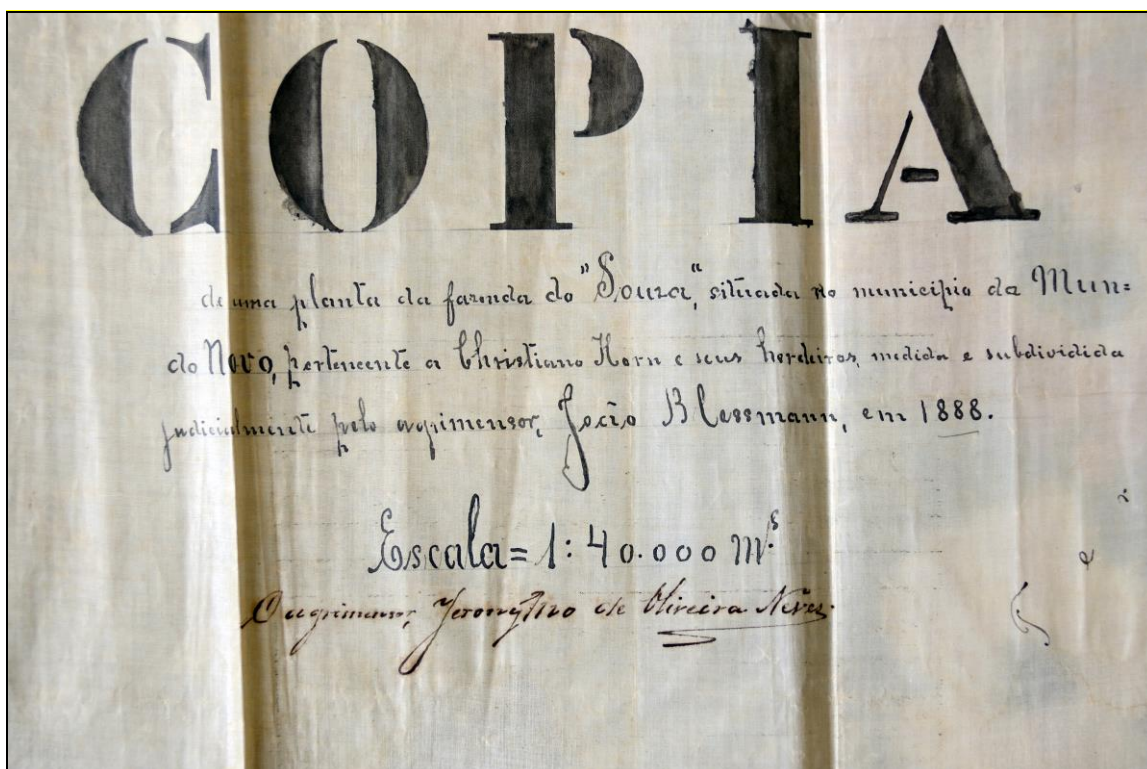 COPIA
de uma planta da fazenda do "Souza", situada no municipio da Mun=
do Novo, pertencente a Christiano Horn e seus herdeiros, medida e subdividida
judicialmente pelo agrimensor, João Blessmann, em 1888.
Escala = 1: 40.000 m.s
O agrimensor, Jeronymo de Oliveira Neves.